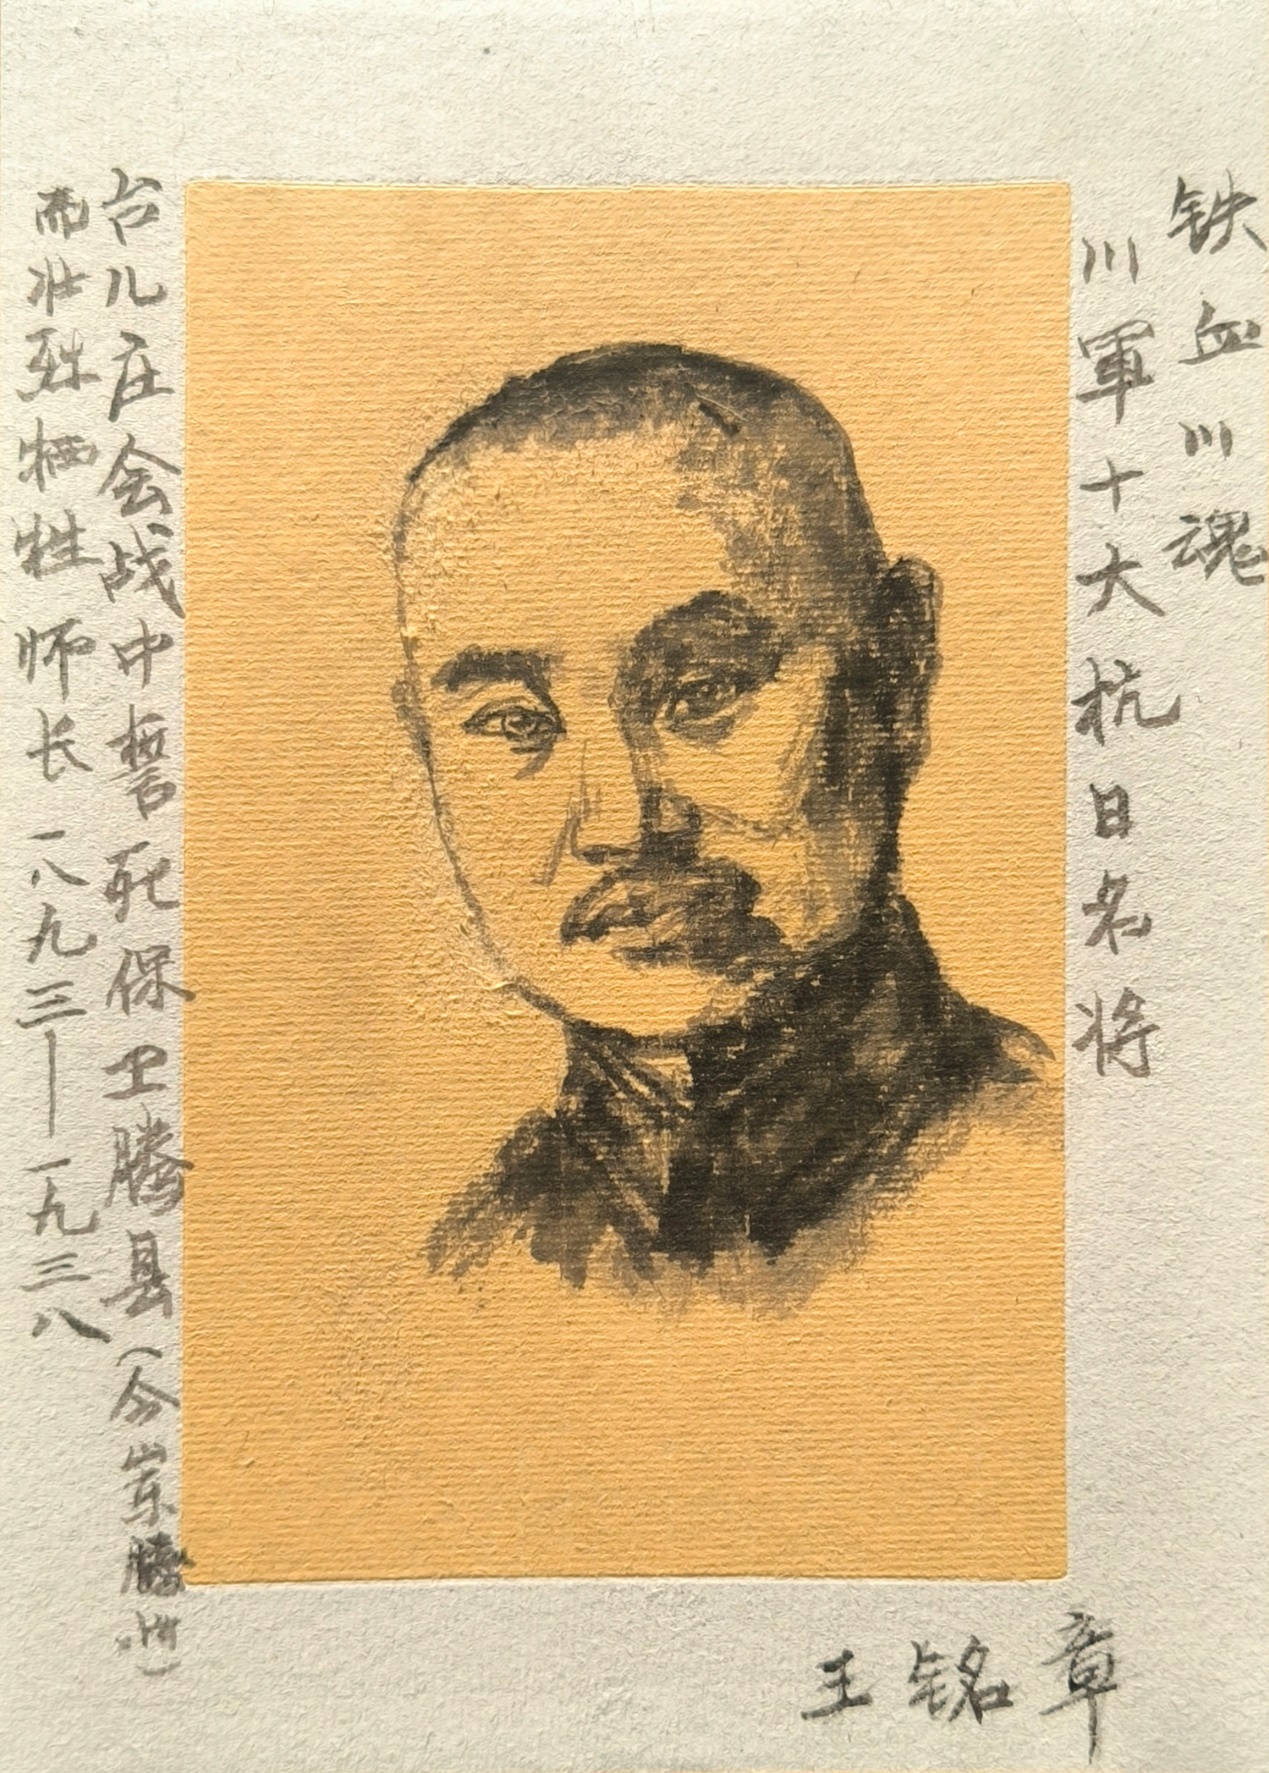 铁血川魂
川軍十大抗日名将
台儿庄会战中誓死保卫腾县(今崇腾州)
而壮烈牺牲 师长 一八九三—一九三八
王铭章